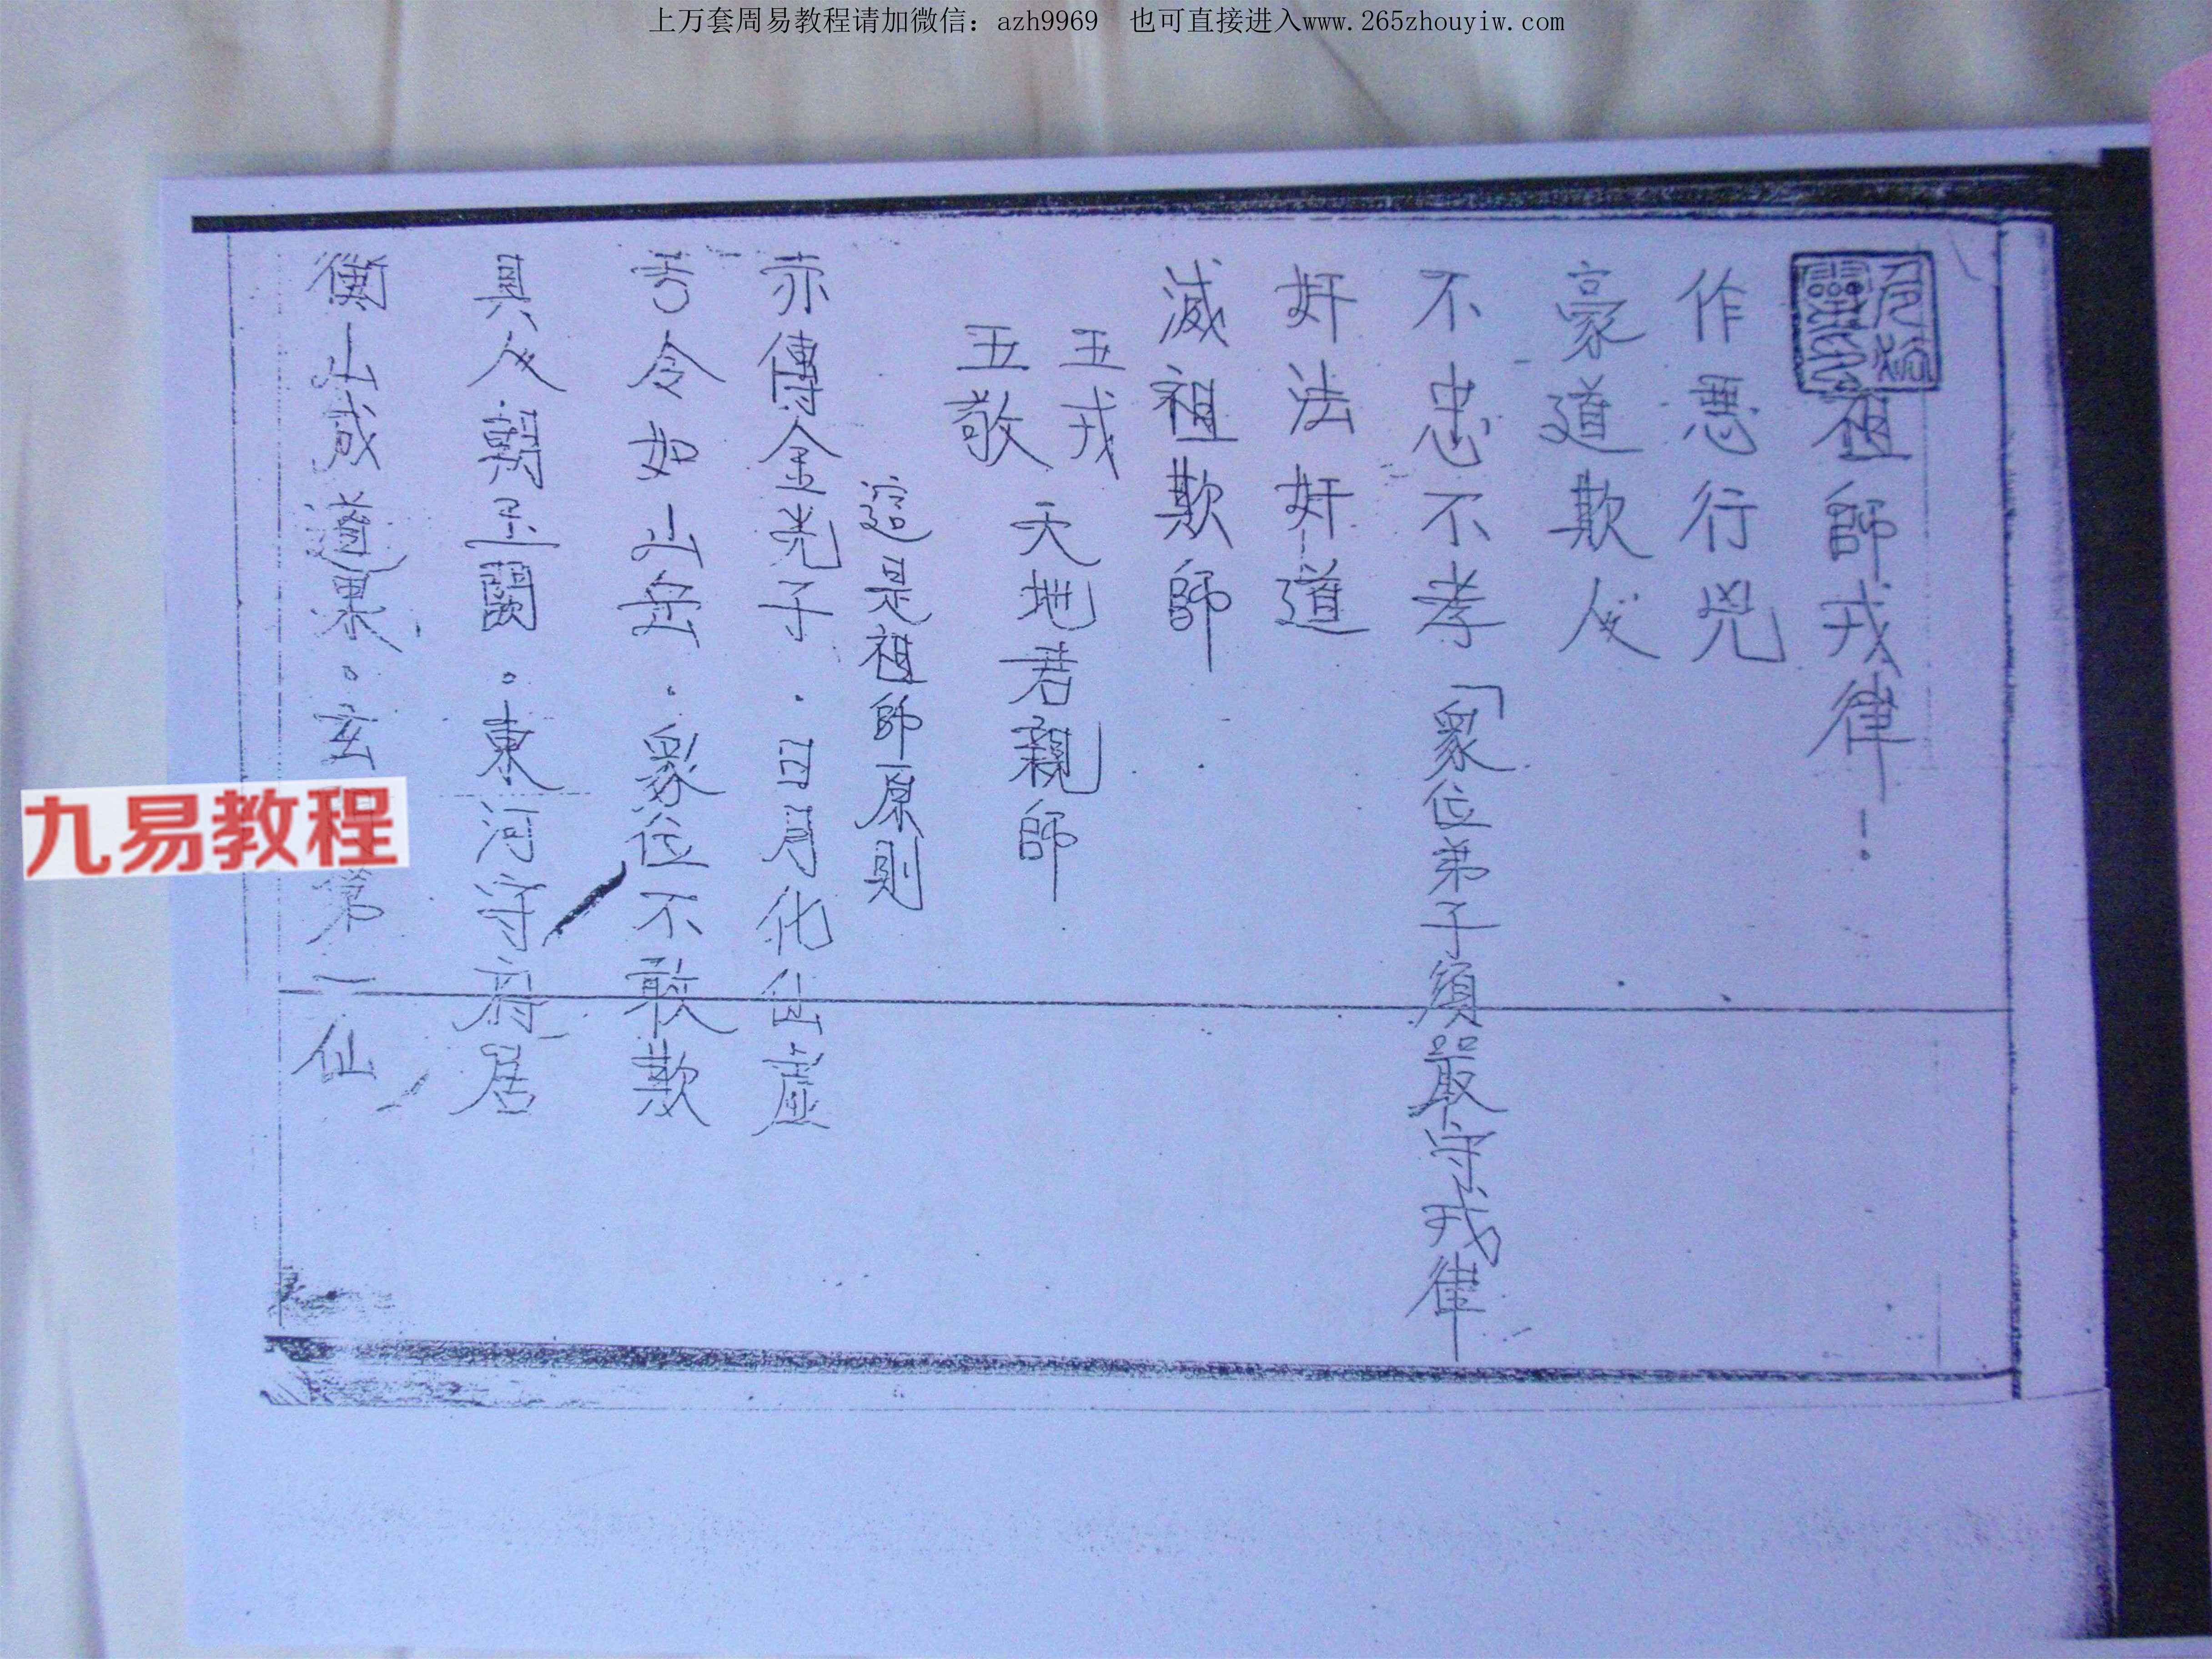 上万套周易教程请加微信：azh9969　也可直接进入www.265zhouyiw.com
祖師戒律！
作悪行兇
豪道欺人
不忠不孝「眾位弟子須嚴守戒律
奸法奸道
滅祖欺師
五戒
五敬
天地君親師
這是祖師原則
赤傳金光子．日月化仙虛
言令如山岳．眾位不敢欺
具人朝玉闕。東河守府居
衡山成道果。玄 第一仙
九易教程